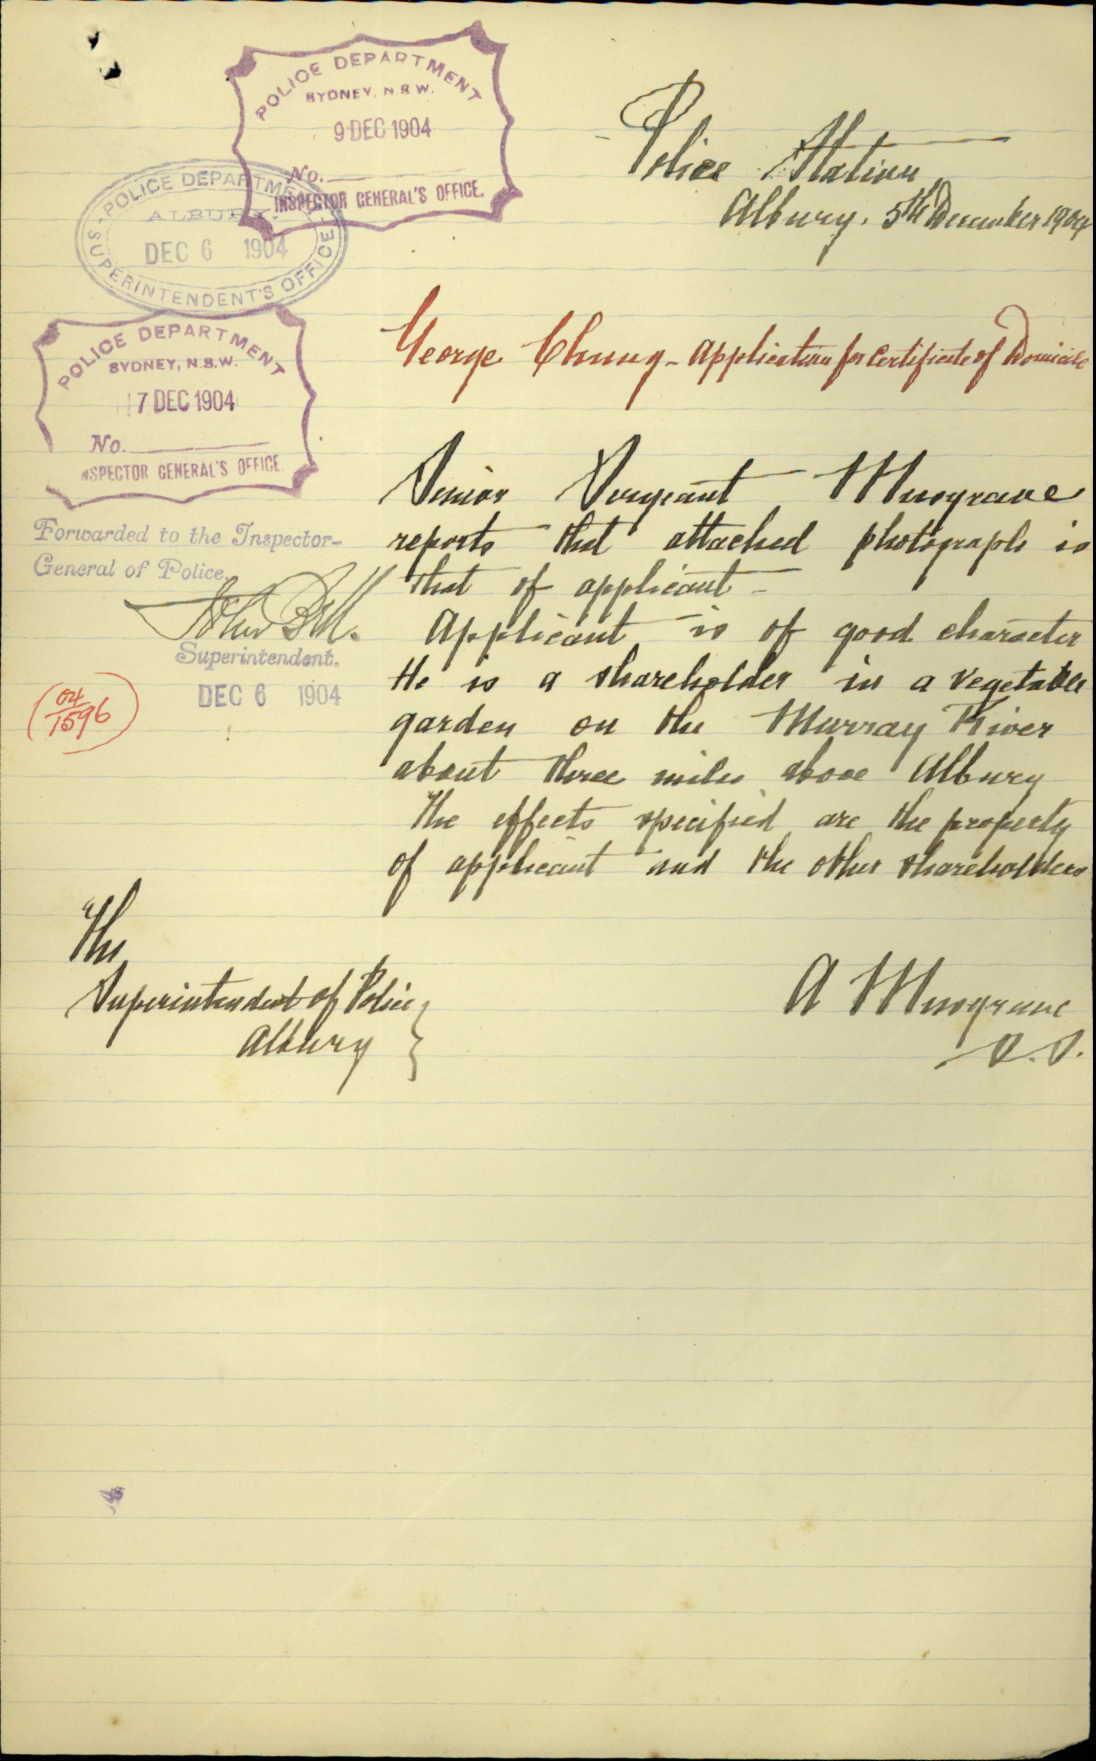 POLICE DEPARTMENT
SYDNEY, N.S.W.
9 DEC 1904
No.
INSPECTOR GENERAL'S OFFICE.
POLICE DEPARTMENT
ALBURY.
DEC 6 1904
SUPERINTENDENT'S OFFICE
POLICE DEPARTMENT
SYDNEY, N.S.W.
7 DEC 1904
No.
INSPECTOR GENERAL'S OFFICE
Forwarded to the Inspector-
General of Police.
John
Superintendent.
DEC 6 1904
04
1596
Police Station
Albury. 5th December 1904
George Chung - Application for Certificate of Domicile
Senior Sergeant Musgrave
reports that attached photograph is
that of applicant -
Applicant is of good character
He is a shareholder in a vegetable
garden on the Murray River
about three miles above Albury
The effects specified are the property
of applicant and the other shareholders
A Musgrave
S.S.
The
Superintendent of Police
Albury